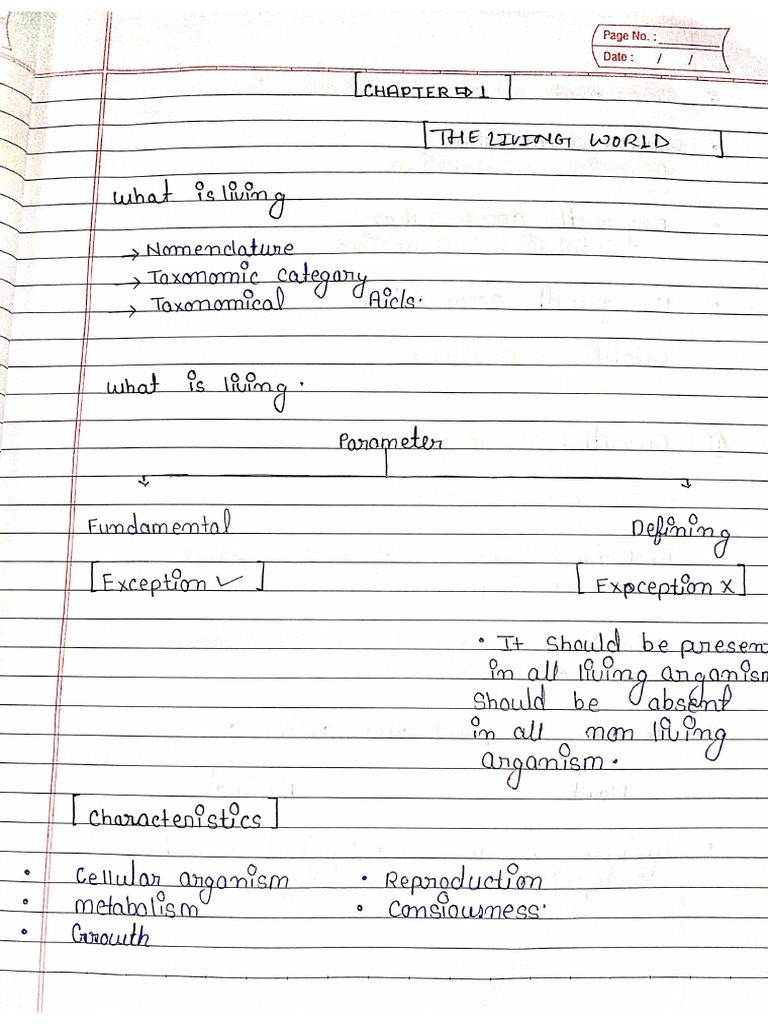 Page No. :
Date : / /
CHAPTER ⇒ 1
THE LIVING WORLD
What is living
→ Nomenclature
→ Taxonomic category
→ Taxonomical Aids.
What is living.
Parameter
Fundamental Defining
Exception ✓ Expception x
• It should be presen
in all living arganism
should be absent
in all non living
arganism.
Characteristics
• Cellular arganism • Reproduction
• metabolism • Consiousness.
• Growth